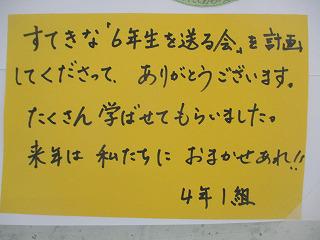 すてきな「6年生を送る会」を計画
してくださって、ありがとうございます。
たくさん学ばせてもらいました。
来年は私たちにおまかせあれ!!
4年1組